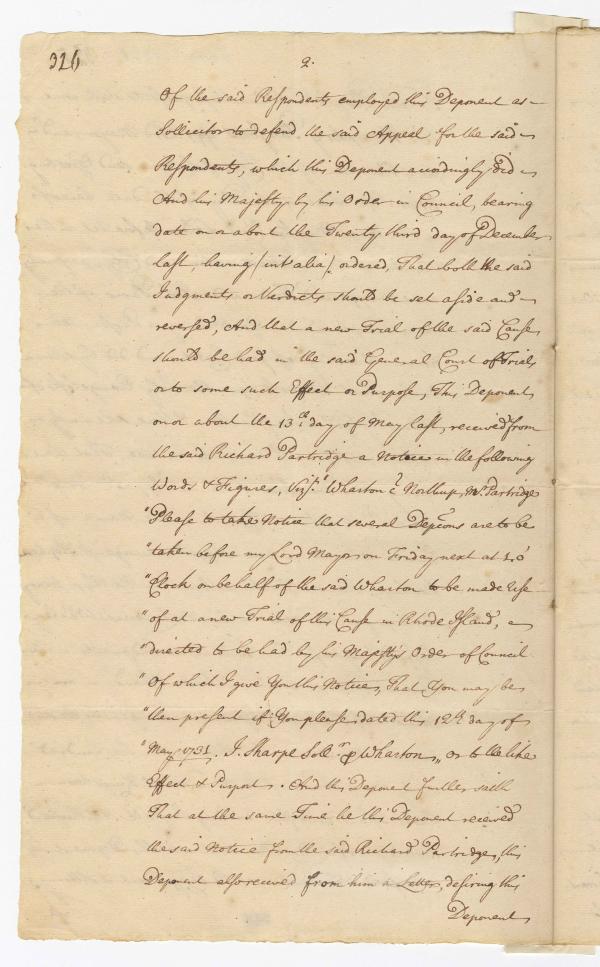 326
2.
Of the said Respondents employed this Deponent as
Sollicitor to defend the said Appeal for the said
Respondents, which this Deponent accordingly did
And his Majesty by his Order in Council, bearing
date on or about the Twenty third day of December
last, having /int'alia/ ordered, That both the said
Judgments or Verdicts should be set aside and
reversed, And that a new Trial of the said Cause
should be had in the said General Court of Trials
or to some such Effect or Purpose, This Deponent
on or about the 13th. day of May last, received from
the said Richard Partridge a Notice in the following
Words & Figures, Vizt. " Wharton & Northup, Mr. Partridge
"Please to take Notice that several Depcons are to be
"taken before my Lord Mayor on Friday next at 10 o'
"Clock on behalf of the said Wharton to be made Use
"of at a new Trial of this Cause in Rhode Island, as
"directed to be had by his Majesty's Order of Council
"Of which I give You this Notice, That You may be
"then present if You please, dated this 12th. day of
"May 1731. J. Sharpe Sollr. p Wharton„ or to the like
Effect & Purport. And this Deponent further saith
That at the same Time he this Deponent received
the said Notice from the said Richard Partridge, this
Deponent also received from him a Letter, desiring this
Deponent